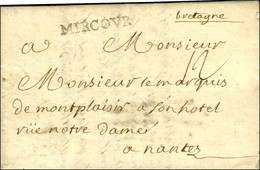 bretagne
MIRCOUR
a Monsieur
Monsieur le marquis
de montplaisir a son hotel
rüe notre dame
a nantes